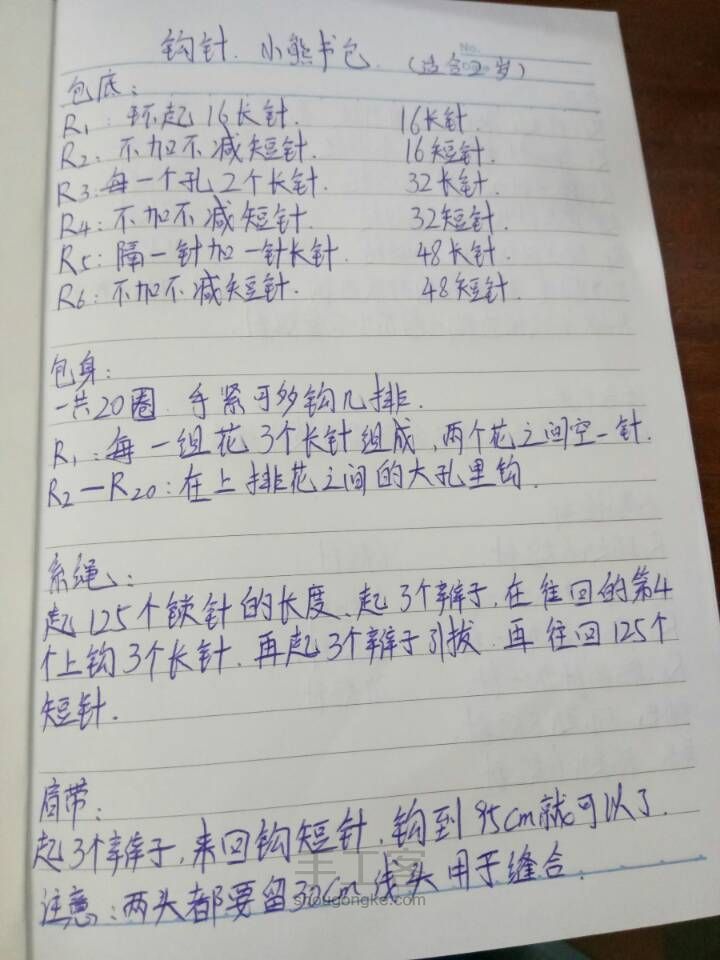 钩针. 小熊书包. (适合2岁)
No.
包底:
R1: 环起16长针. 16长针.
R2: 不加不减短针. 16短针.
R3: 每一个孔2个长针. 32长针.
R4: 不加不减短针. 32短针.
R5: 隔一针加一针长针. 48长针.
R6: 不加不减短针. 48短针.
包身:
一共20圈. 手紧可多钩几排.
R1: 每一组花3个长针组成, 两个花之间空一针.
R2—R20: 在上排花之间的大孔里钩.
系绳:
起125个锁针的长度、起3个辫子, 在往回的第4
个上钩3个长针. 再起3个辫子引拔. 再往回125个
短针.
肩带:
起3个辫子, 来回钩短针, 钩到95cm就可以了.
注意: 两头都要留30cm线头用于缝合.
手工客
shougongke.com